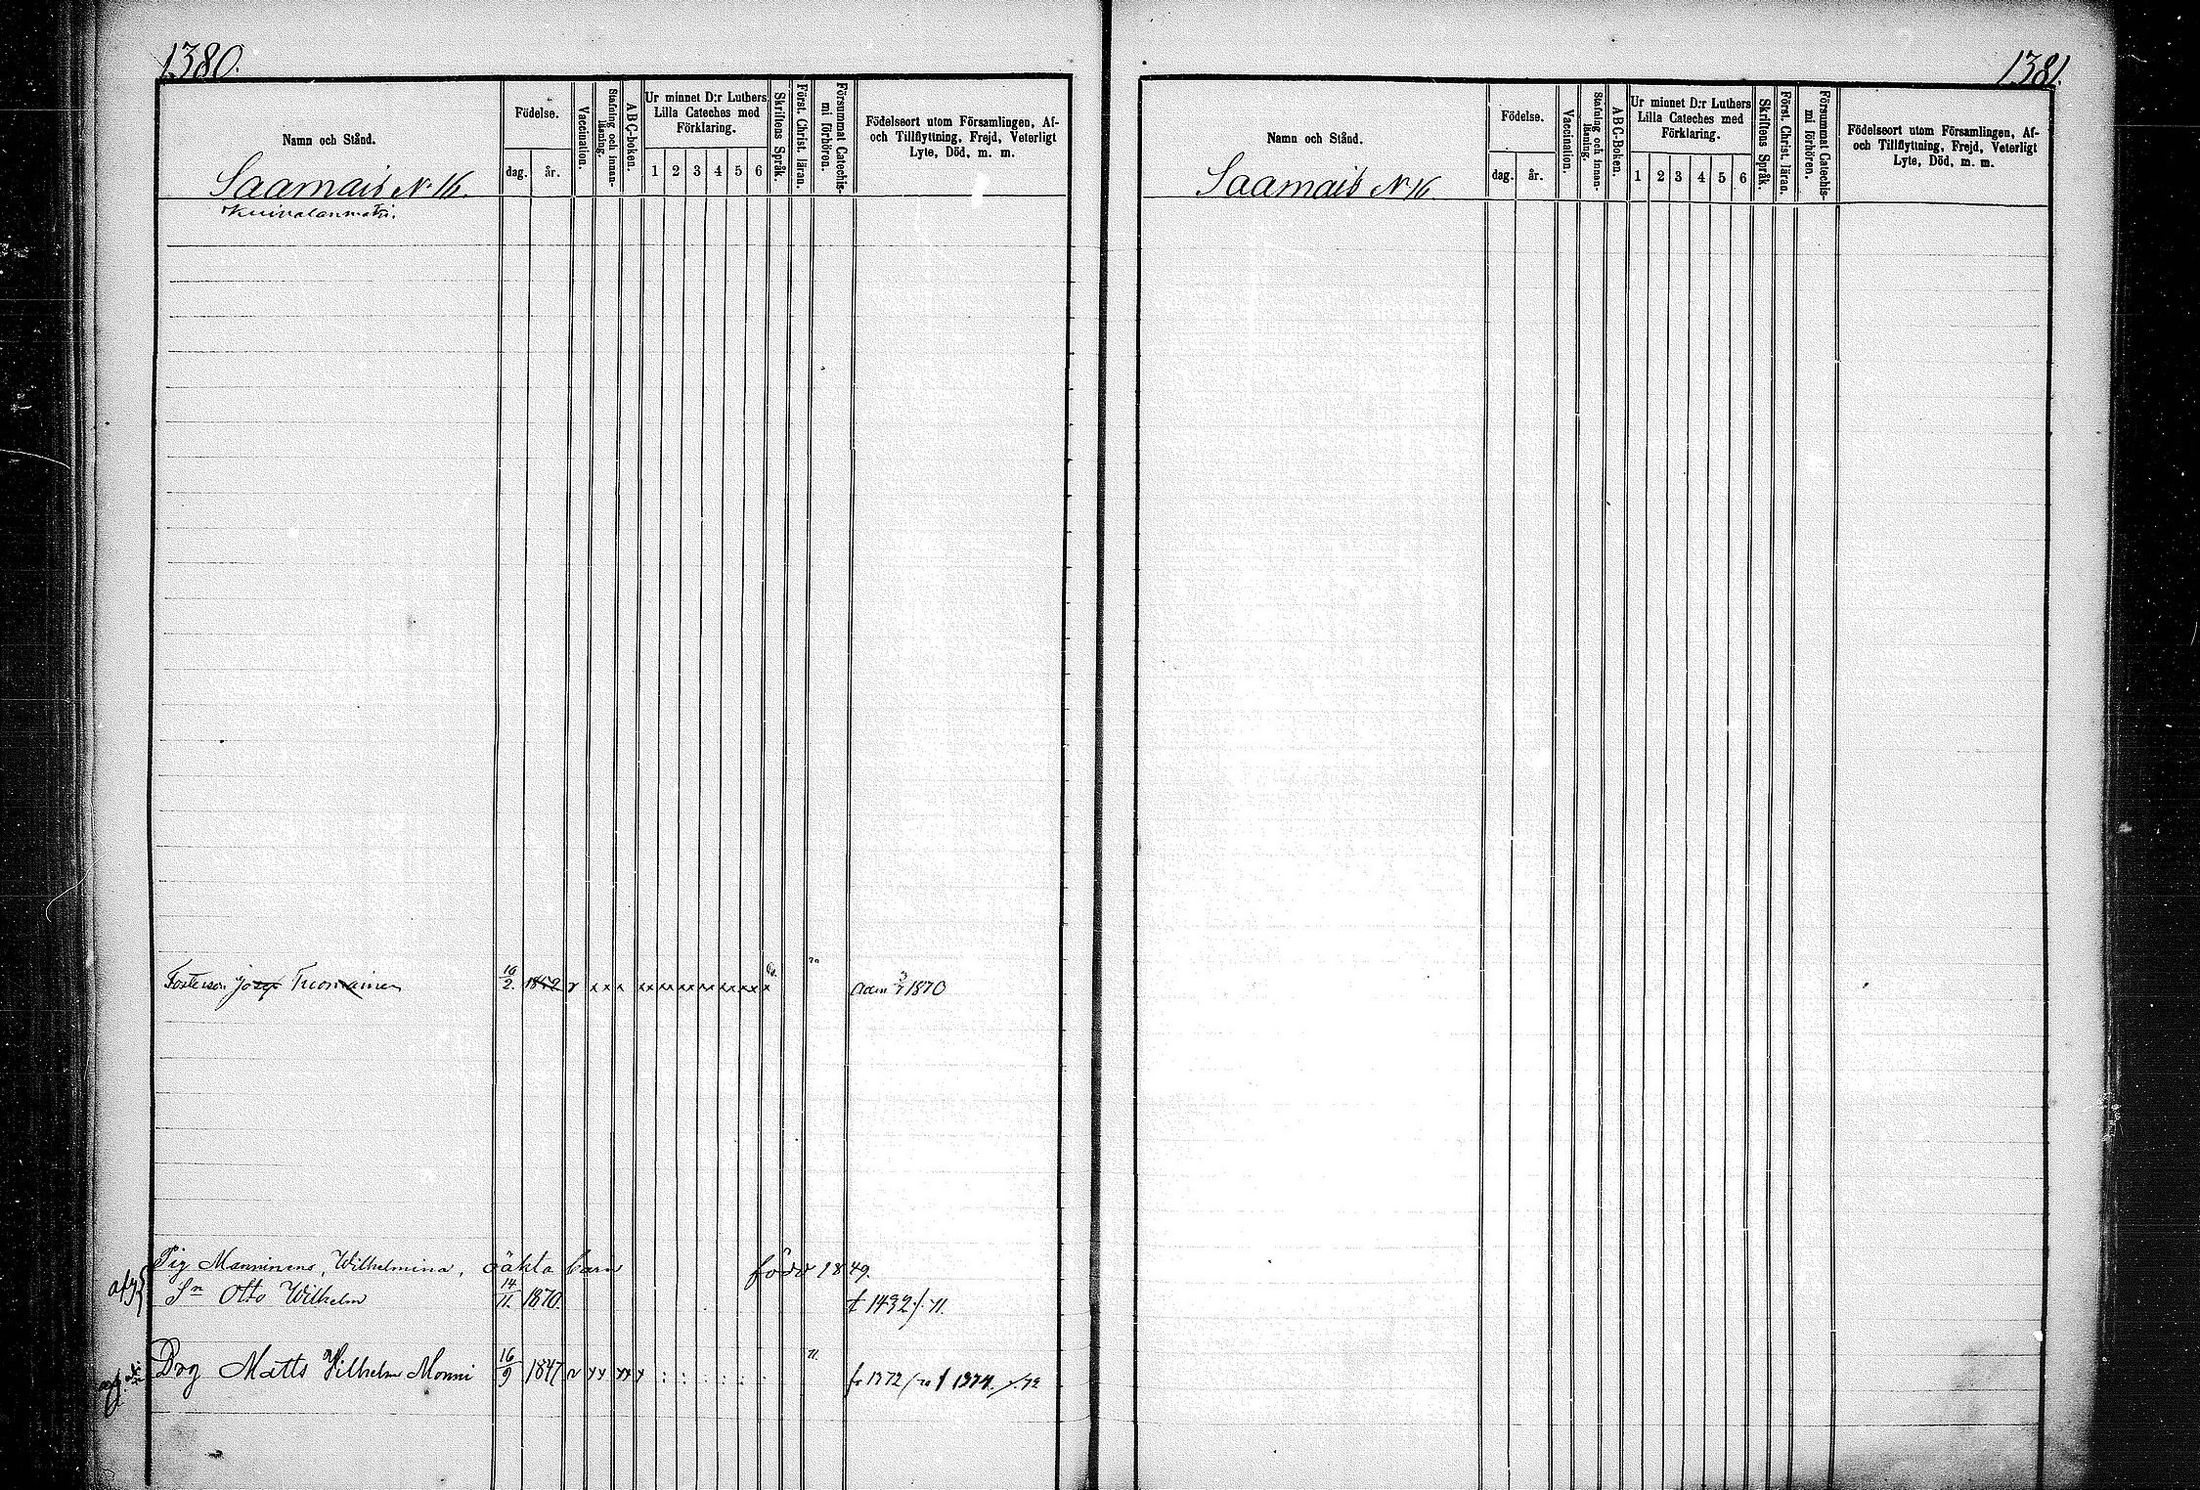 1380.
Namn och Stånd.
Födelse.
dag. år.
Vaccination.
Stafning och innan-läsning.
ABC-boken.
Ur minnet D:r Luthers Lilla Cateches med Förklaring.
1 2 3 4 5 6
Skriftens Språk.
Först. Christ. läran.
Försummat Catechis-mi förhören.
Födelseort utom Församlingen, Af- och Tillflyttning, Frejd, Veterligt Lyte, Död, m. m.
Saamais No 16.
Fosterson Josef Tuomainen 16/2. 1852 v x x x xx xx xx xx xx xx x 1870
Pig Manninens, Wilhelmina, oäkta barn född 1849.
Sn Otto Wilhelm 14/11. 1870. t 1432 /. 71.
Drg Matts Wilhelm Monni 16/9 1847 71.
1381.
Namn och Stånd.
Födelse.
dag. år.
Vaccination.
Stafning och innan-läsning.
ABC-Boken.
Ur minnet D:r Luthers Lilla Cateches med Förklaring.
1 2 3 4 5 6
Skriftens Språk.
Först. Christ. läran.
Försummat Catechis-mi förhören.
Födelseort utom Församlingen, Af- och Tillflyttning, Frejd, Veterligt Lyte, Död, m. m.
Saamais No 16.